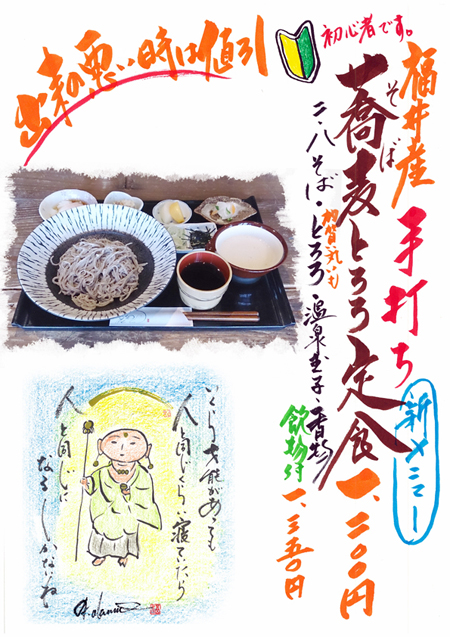 福井産
手打ち
蕎麦とろろ定食
そば
新メニュー
一、二〇〇円
初心者です。
二・八そば・とろろ・温泉玉子・香物
加賀丸いも
飲物付
一、三五〇円
出来の悪い時は値引
いくら才能があっても
人と同じくらい寝ていたら
人と同じに
なるしかないね